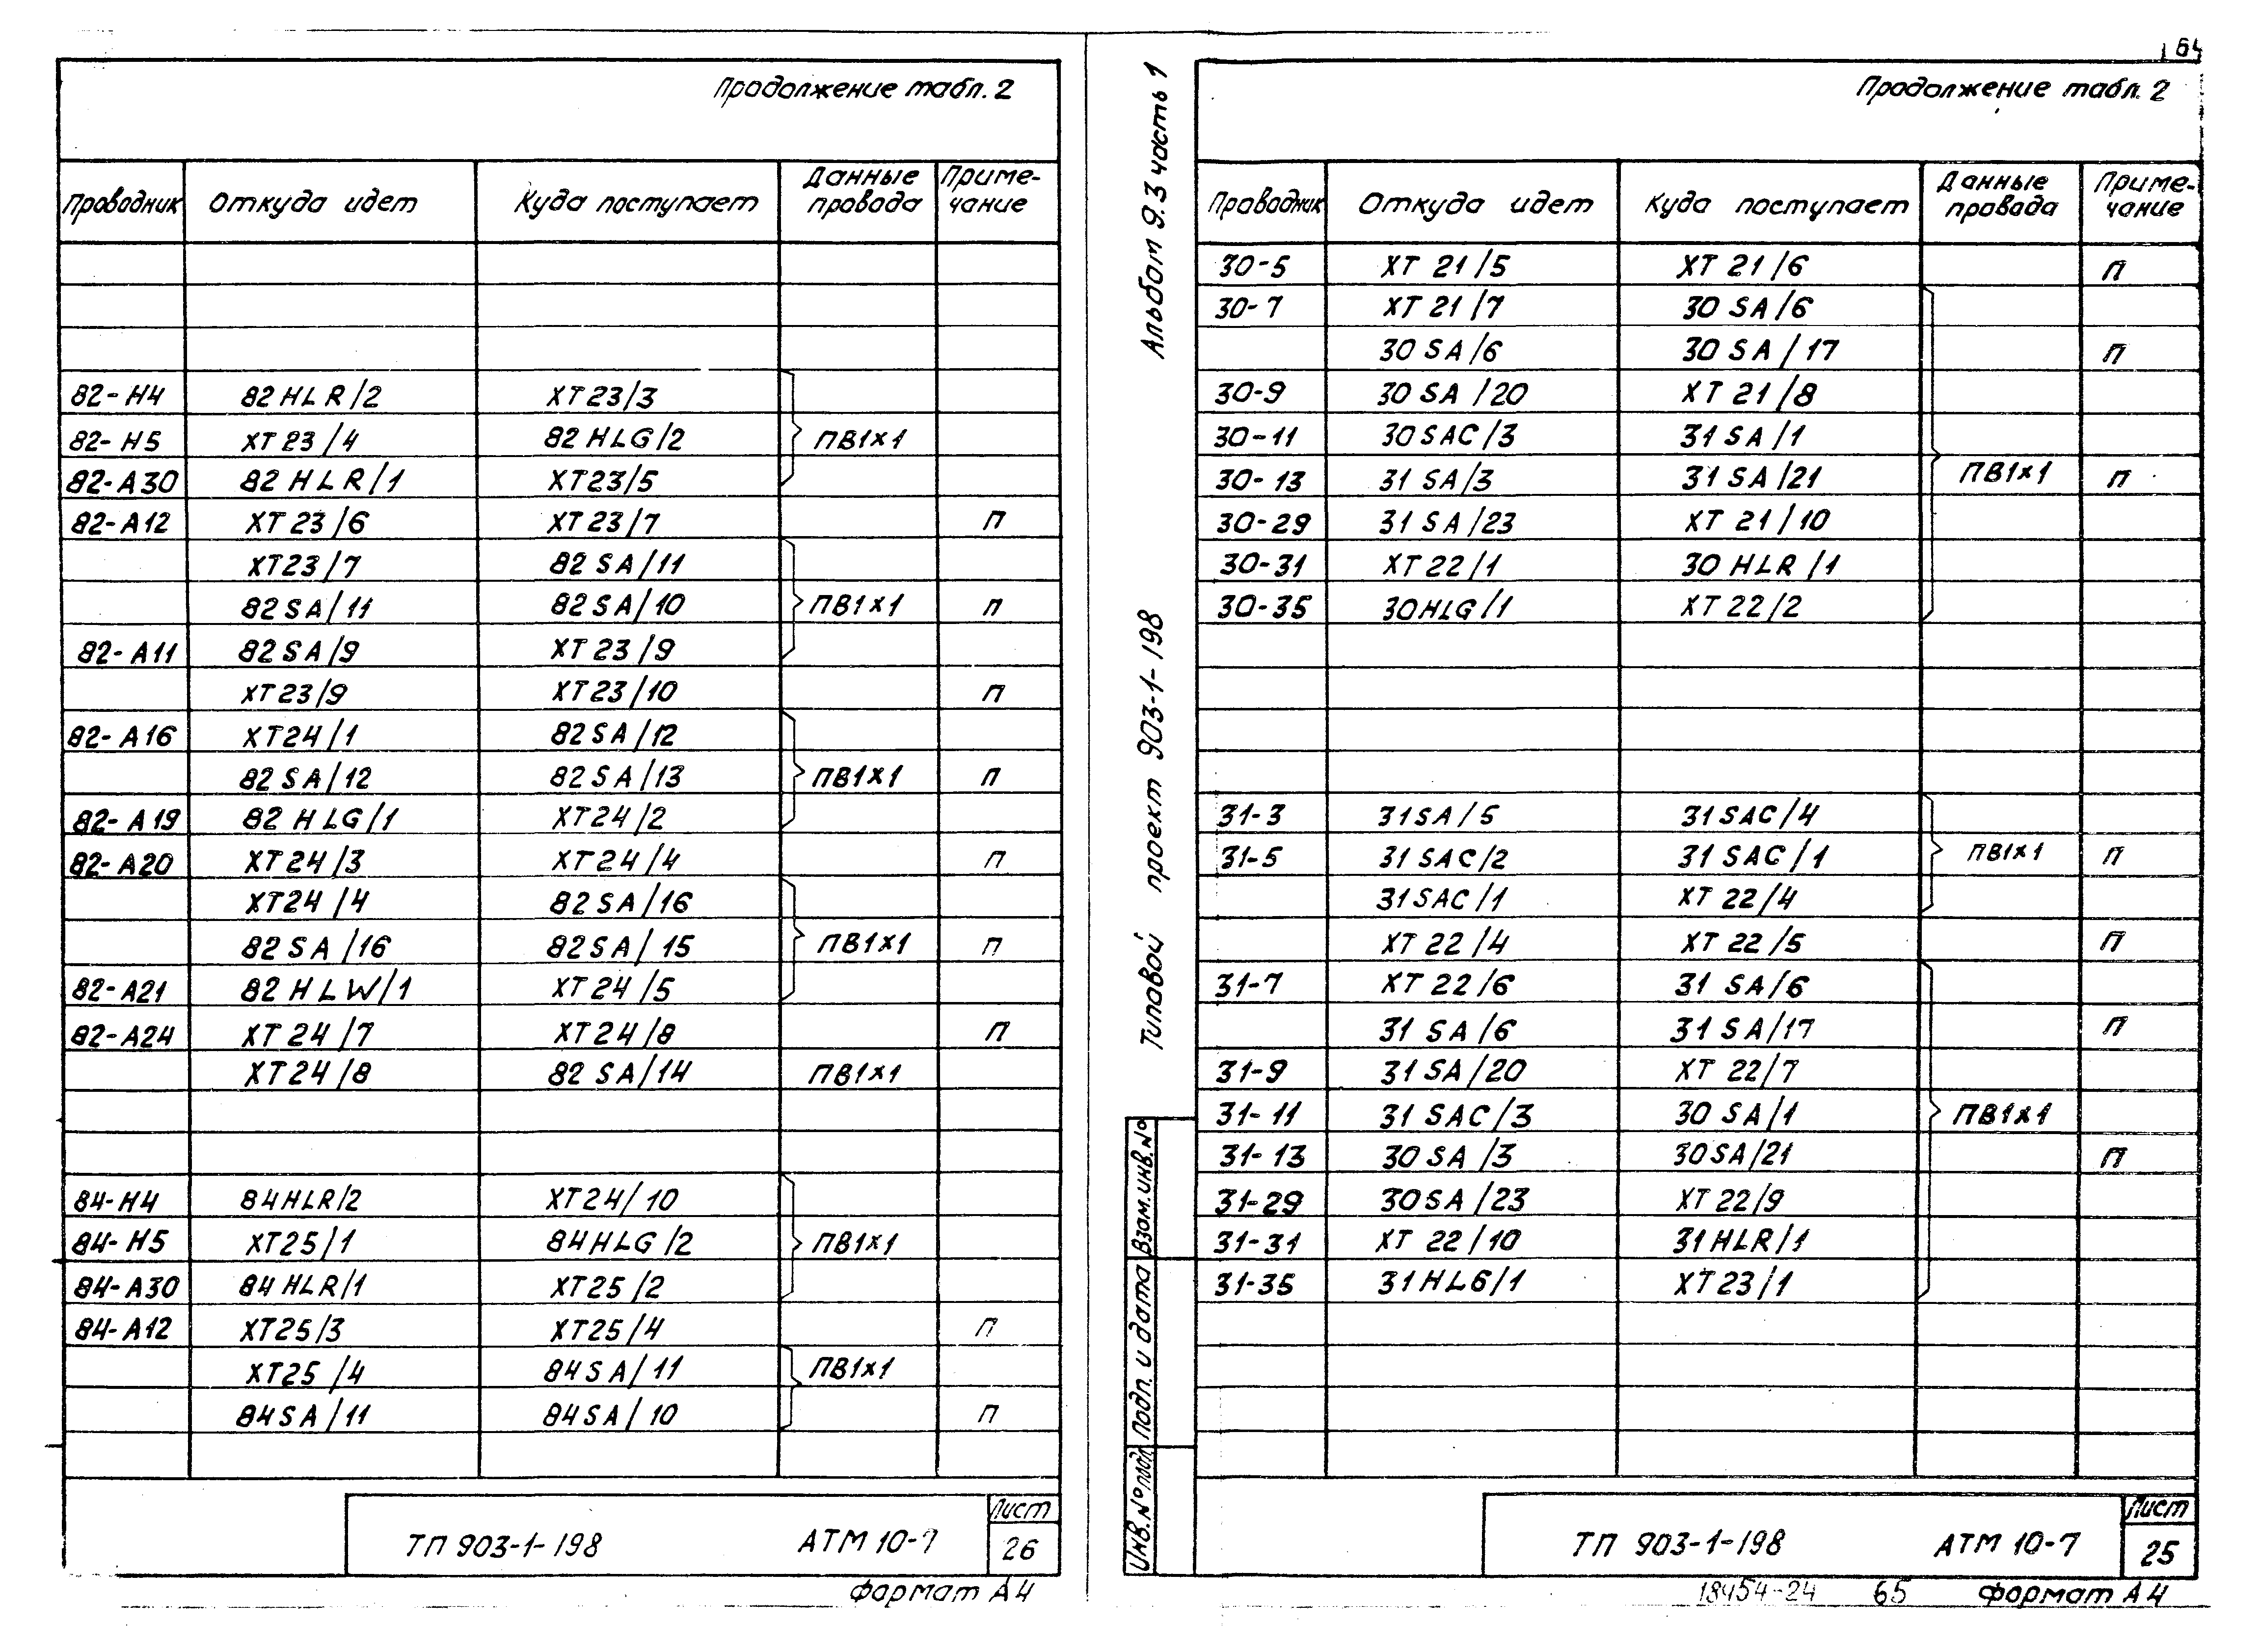 Продолжение табл. 2
Проводник Откуда идет Куда поступает Данные провода Приме-чание
82-Н4 82HLR/2 XT23/3
82-Н5 XT23/4 82HLG/2 ПВ1×1
82-А30 82HLR/1 XT23/5
82-А12 XT23/6 XT23/7 П
XT23/7 82SA/11
82SA/11 82SA/10 ПВ1×1 П
82-А11 82SA/9 XT23/9
XT23/9 XT23/10 П
82-А16 XT24/1 82SA/12
82SA/12 82SA/13 ПВ1×1 П
82-А19 82HLG/1 XT24/2
82-А20 XT24/3 XT24/4 П
XT24/4 82SA/16
82SA/16 82SA/15 ПВ1×1 П
82-А21 82HLW/1 XT24/5
82-А24 XT24/7 XT24/8 П
XT24/8 82SA/14 ПВ1×1
84-Н4 84HLR/2 XT24/10
84-Н5 XT25/1 84HLG/2 ПВ1×1
84-А30 84HLR/1 XT25/2
84-А12 XT25/3 XT25/4 П
XT25/4 84SA/11 ПВ1×1
84SA/11 84SA/10 П
ТП 903-1-198 АТМ 10-7 Лист 26
Формат А4
64
Альбом 9.3 часть 1
Типовой проект 903-1-198
Взам.инв.№
Подп. и дата
Инв.№подл.
Продолжение табл. 2
Проводник Откуда идет Куда поступает Данные провода Приме-чание
30-5 XT21/5 XT21/6 П
30-7 XT21/7 30SA/6
30SA/6 30SA/17 П
30-9 30SA/20 XT21/8
30-11 30SAC/3 31SA/1
30-13 31SA/3 31SA/21 ПВ1×1 П
30-29 31SA/23 XT21/10
30-31 XT22/1 30HLR/1
30-35 30HLG/1 XT22/2
31-3 31SA/5 31SAC/4
31-5 31SAC/2 31SAC/1 ПВ1×1 П
31SAC/1 XT22/4
XT22/4 XT22/5 П
31-7 XT22/6 31SA/6
31SA/6 31SA/17 П
31-9 31SA/20 XT22/7
31-11 31SAC/3 30SA/1 ПВ1×1
31-13 30SA/3 30SA/21 П
31-29 30SA/23 XT22/9
31-31 XT22/10 31HLR/1
31-35 31HLG/1 XT23/1
ТП 903-1-198 АТМ 10-7 Лист 25
18454-24 65 Формат А4